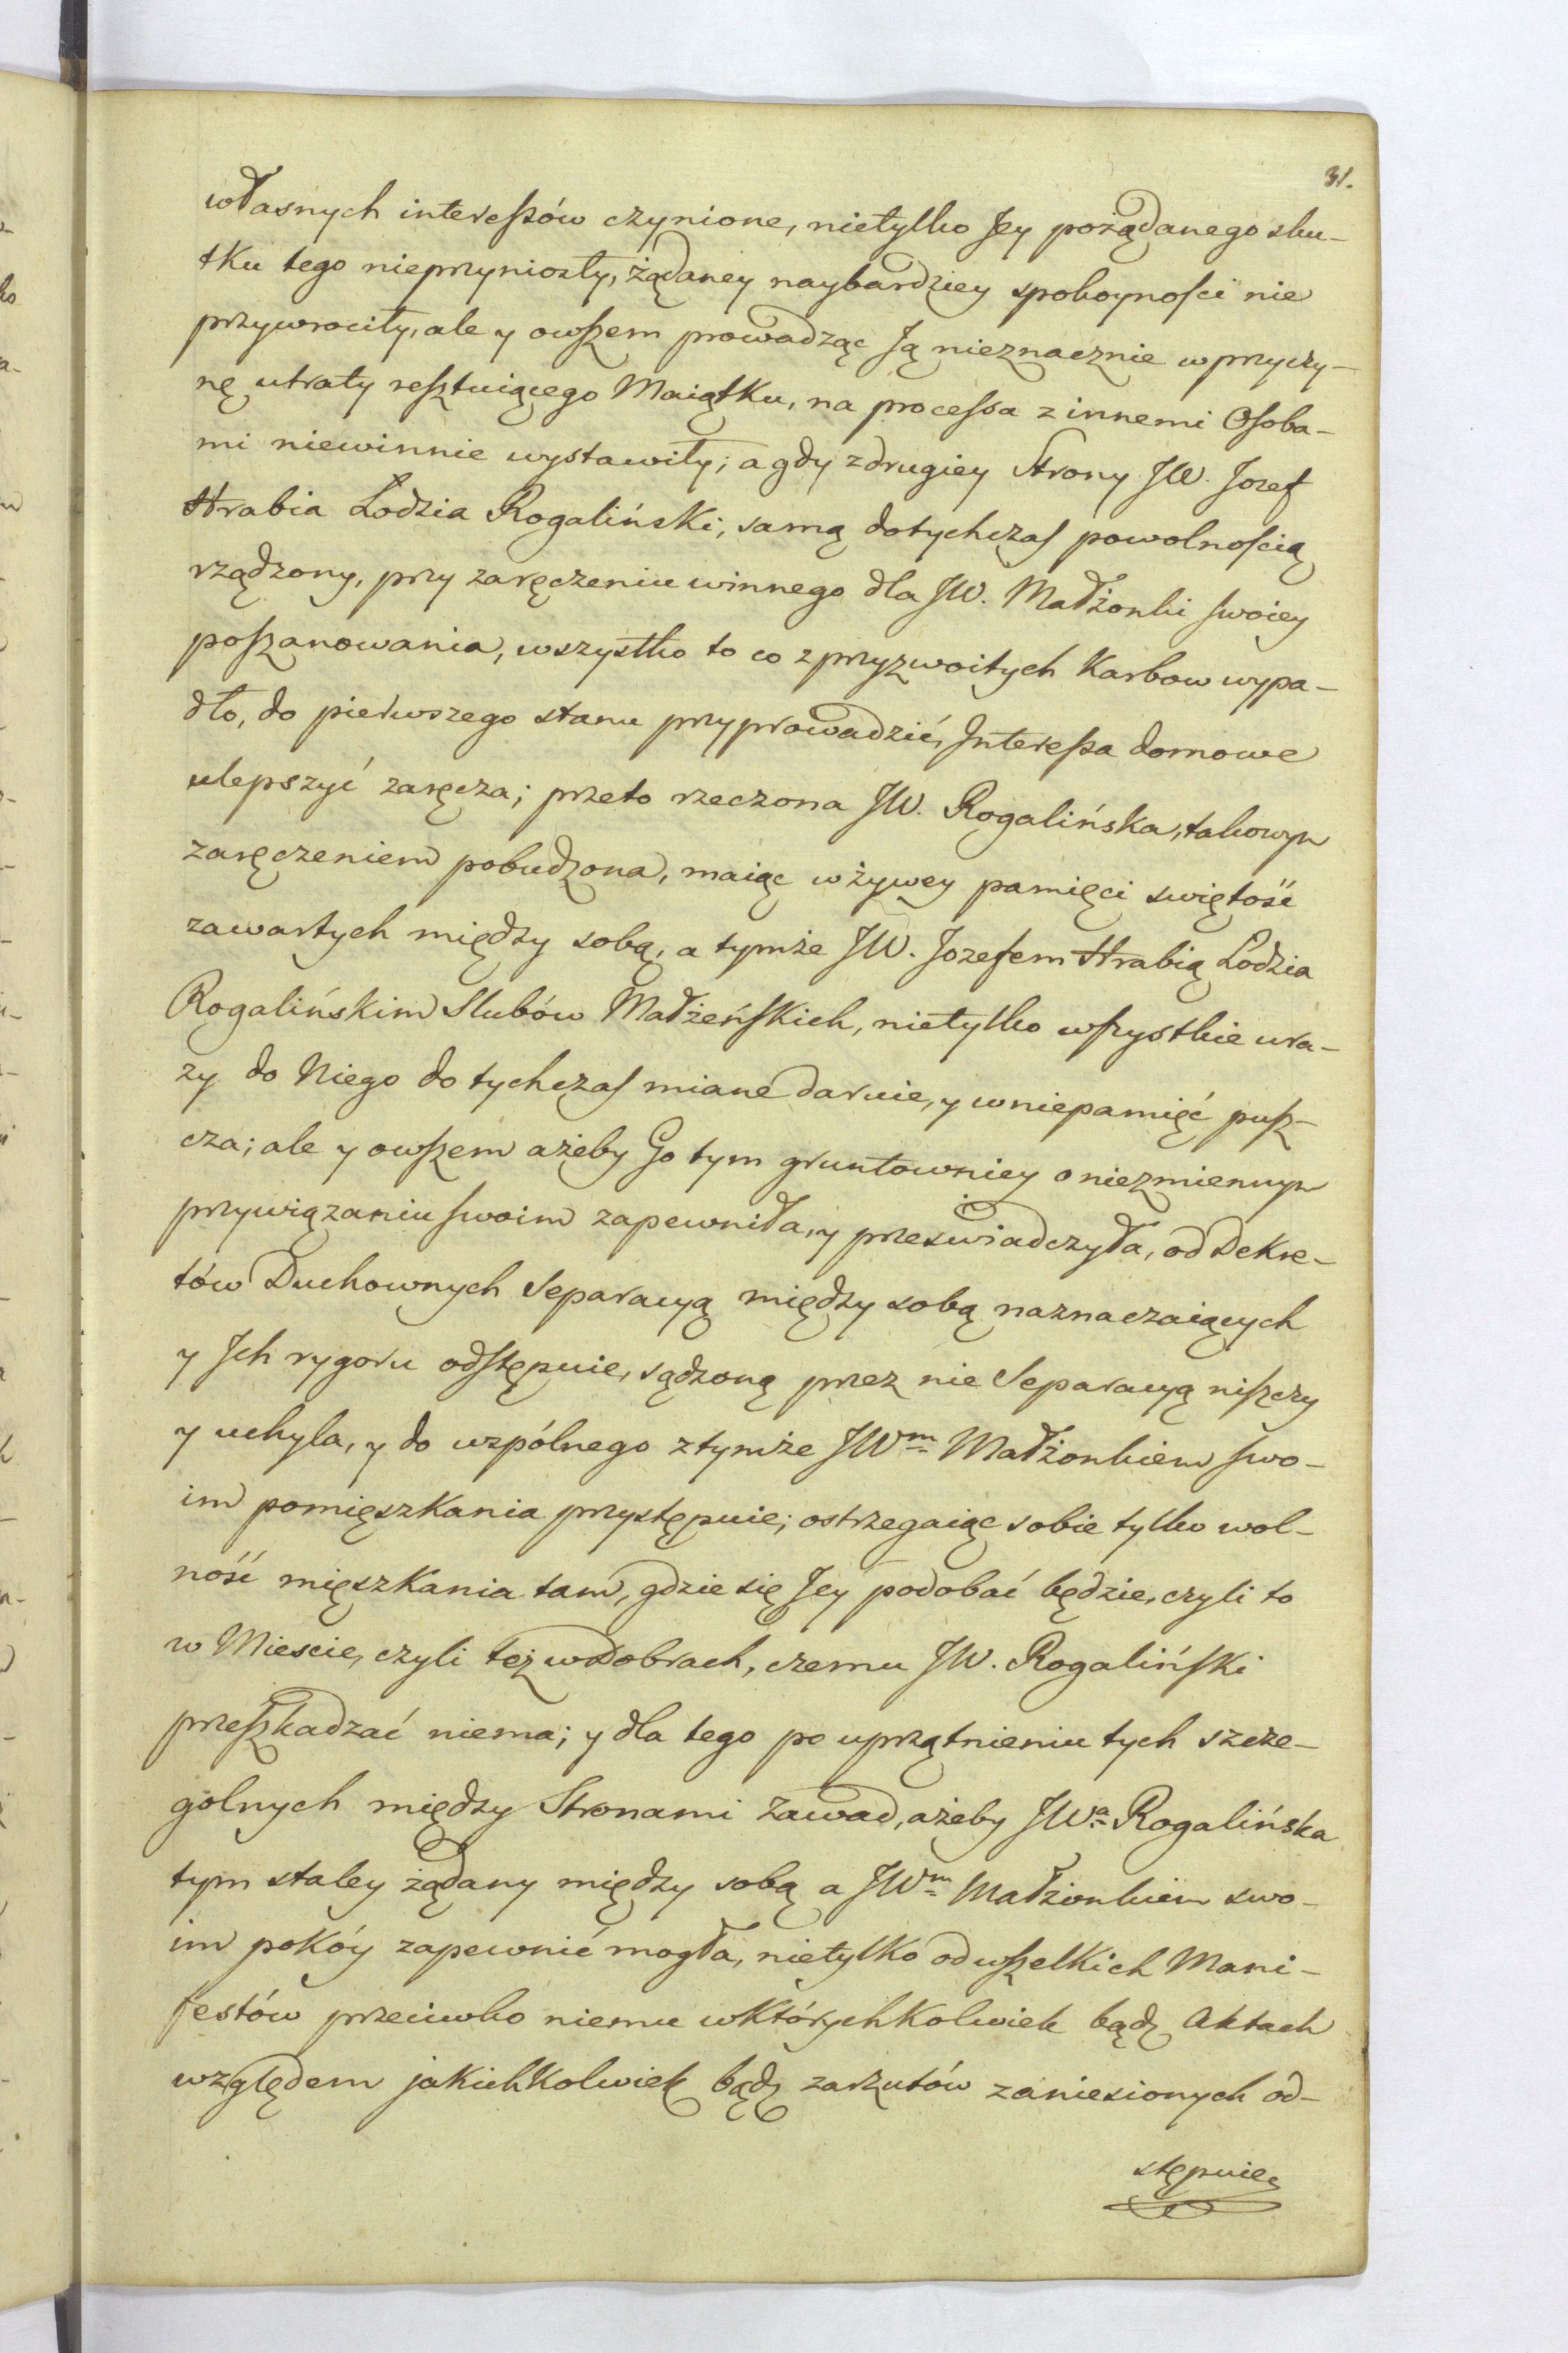 31.
własnych interessów czynione, nietylko Jey pożądanego sku-
tku tego nieprzyniosły, żądaney naybardziey spokoyności nie
przywrociły, ale y owszem prowadząc Ją nieznacznie w przyczy-
nę utraty resztuiącego Maiątku, na processa z innemi Osoba-
mi niewinnie wystawiły; a gdy z drugiey Strony JW. Jozef
Hrabia Łodzia Rogaliński, samą dotychczas powolnością
rządzony, przy zaręczeniu winnego dla JW. Małżonki swoiey
poszanowania, wszystko to co z przyzwoitych Karbow wypa-
dło, do pierwszego stanu przyprowadzić, Interessa domowe
ulepszyć zaręcza; przeto rzeczona JW. Rogalińska, takowym
zaręczeniem pobudzona, maiąc w żywey pamięci swiętość
zawartych między sobą, a tymże JW. Jozefem Hrabią Łodzia
Rogalińskim Slubów Małżeńskich, nietylko wszystkie ura-
zy do Niego dotychczas miane daruie, y w niepamięć pusz-
cza; ale y owszem ażeby Go tym gruntowniey o niezmiennym
przywiązaniu swoim zapewniła, y przeswiadczyła, od Dekre-
tów Duchownych Separacyą między sobą naznaczaiących
y Jch rygoru odstępuie, sądzoną przez nie Separacyą niszczy
y uchyla, y do wspólnego z tymże JWm Małżonkiem swo-
im pomięszkania przystępuie; ostrzegaiąc sobie tylko wol-
ność mięszkania tam, gdzie się Jey podobać będzie, czyli to
w Miescie, czyli też w Dobrach, czemu JW. Rogaliński
przeszkadzać niema; y dla tego po uprzątnieniu tych szcze-
golnych między Stronami Zawad, ażeby JWa Rogalińska
tym staley żądany między sobą a JWm Małżonkiem swo-
im pokóy zapewnić mogła, nietylko od wszelkich Mani-
festów przeciwko niemu w którychkolwiek bądź Aktach
względem jakichkolwiek bądź zarzutów zaniesionych od-
stępuie,